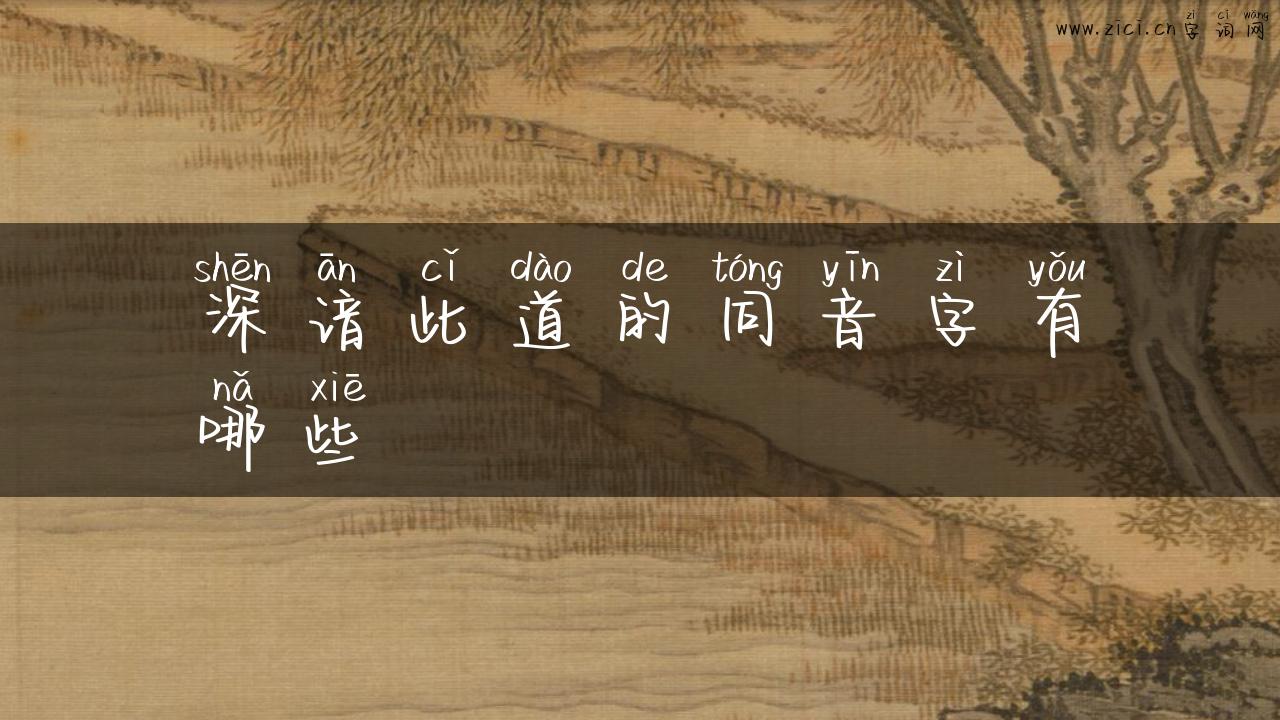 zì cí wǎng
www.zici.cn字词网
shēn ān cǐ dào de tóng yīn zì yǒu
深谙此道的同音字有
nǎ xiē
哪些